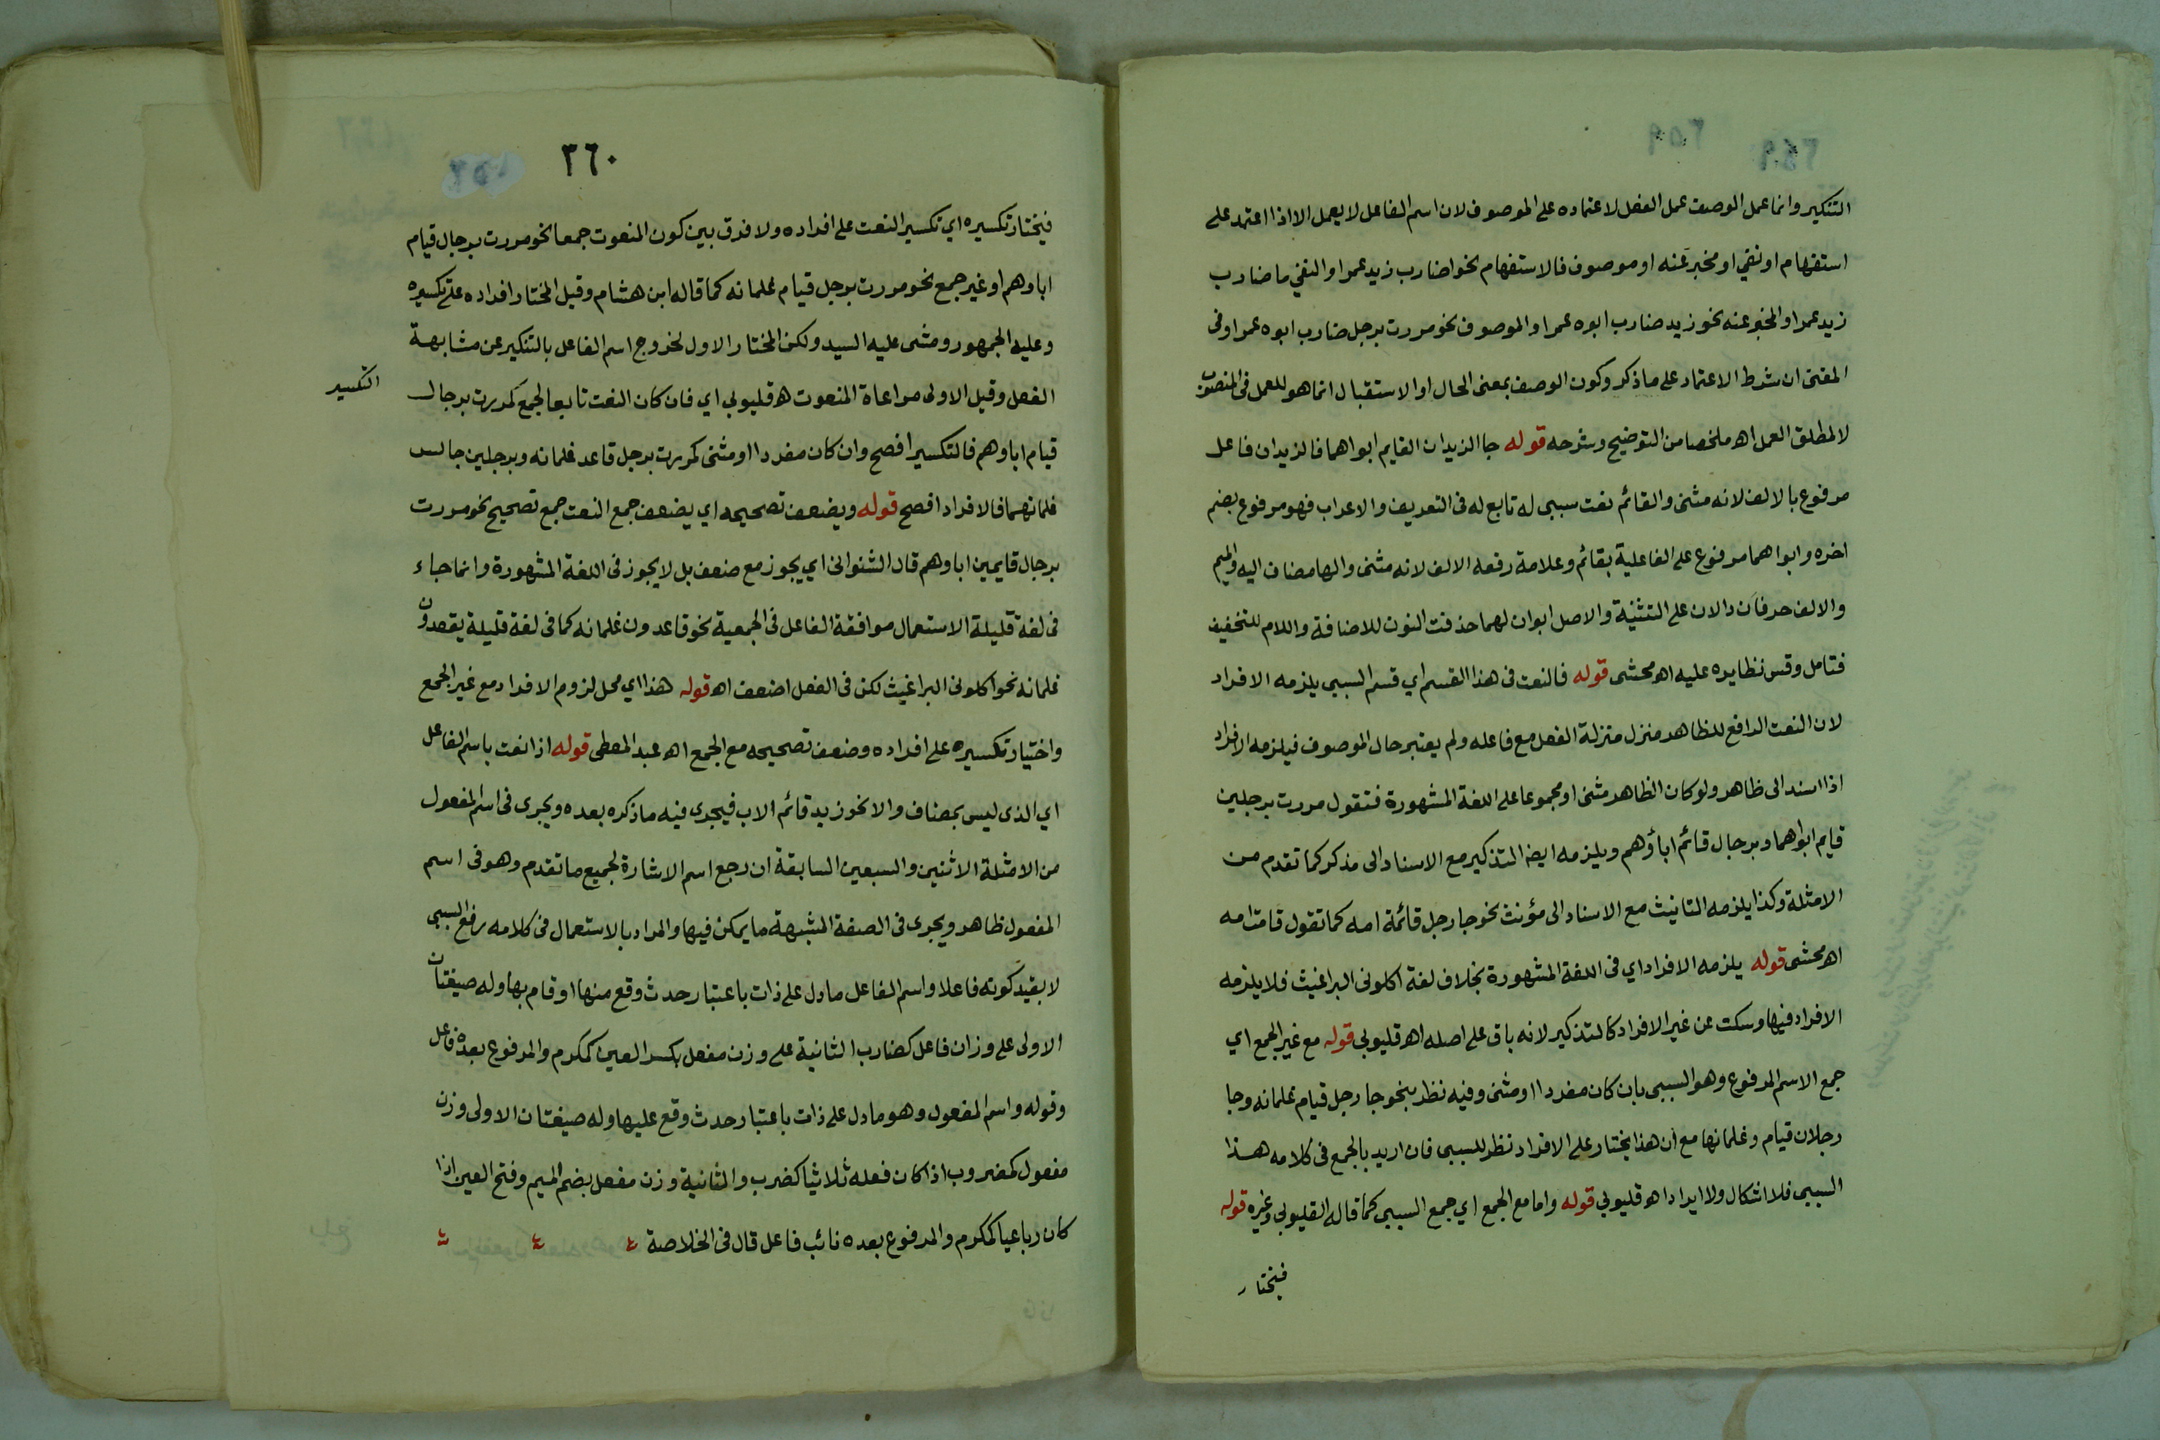 التنكير وانما عمل الوصف عمل الفعل لاعتماده على الموصوف لان اسم الفاعل لا يعمل الا اذا اعتمد على
استفهام او نفي او مخبر عنه او موصوف فالاستفهام نحو اضارب زيد عمرا والنفي ما ضارب
زيد عمرا والمخبر عنه نحو زيد ضارب ابوه عمرا والموصوف نحو مررت برجل ضارب ابوه عمرا وفى
المغنى ان شرط الاعتماد على ما ذكر وكون الوصف بمعنى الحال او الاستقبال انما هو للعمل فى المنصوب
لا لمطلق العمل اهـ ملخصا من التوضيح وشرحه قوله جا الزيدان القايم ابواهما فالزيدان فاعل
مرفوع بالالف لانه مثنى والقائم نعت سببى له تابع له فى التعريف والاعراب فهو مرفوع بضم
اخره وابواهما مرفوع على الفاعلية بقائم وعلامة رفعه الالف لانه مثنى والها مضاف اليه والميم
والالف حرفان دالان على التثنية والاصل ابوان لهما حذفت النون للاضافة واللام للتخفيف
فتامل وقس نظايره عليه اهـ محشى قوله فالنعت فى هذا القسم اي قسم السببى يلزمه الافراد
لان النعت الرافع للظاهر منزل منزلة الفعل مع فاعله ولم يعتبر حال الموصوف فيلزمه الافراد
اذا اسند الى ظاهر ولو كان الظاهر مثنى او مجموعا على اللغة المشهورة فتقول مررت برجلين
قايم ابواهما وبرجال قائم اباؤهم ويلزمه ايضا التذكير مع الاسناد الى مذكر كما تقدم من
الامثلة وكذا يلزمه التانيث مع الاسناد الى مؤنث نحو جا رجل قائمة امه كما تقول قامت امه
اهـ محشى قوله يلزمه الافراد اي فى اللغة المشهورة بخلاف لغة اكلونى البراغيث فلا يلزمه
الافراد فيها وسكت عن غير الافراد كالتذكير لانه باق على اصله اهـ قليوبى قوله مع غير الجمع اي
جمع الاسم المرفوع وهو السببى بان كان مفردا او مثنى وفيه نظر بنحو جا رجل قيام غلمانه وجا
رجلان قيام وغلمانها مع ان هذا يختار على الافراد نظر للسببى فان اريد بالجمع فى كلامه هذا
السببى فلا اشكال ولا ايراد اهـ قليوبي قوله واما مع الجمع اي جمع السببى كما قاله القليوبى وغيره قوله
فيختار
٢٦٠
فيختار تكسيره اي تكسير النعت على افراده ولا فرق بين كون المنعوت جمعا نحو مررت برجال قيام
اباوهم او غير جمع نحو مررت برجل قيام غلمانه كما قاله ابن هشام وقيل المختار افراده على تكسيره
وعليه الجمهور ومشى عليه السيد ولكن المختار الاول لخروج اسم الفاعل بالتكسير عن مشابهة
التكسير
الفعل وقيل الاولى مراعاة المنعوت هـ قليوبي اي فان كان النعت تابعا لجمع كمررت برجال
قيام اباوهم فالتكسير افصح وان كان مفردا او مثنى كمررت برجل قاعد غلمانه وبرجلين جالس
غلمانهما فالافراد افصح قوله ويضعف تصحيحه اي يضعف جمع النعت جمع تصحيح نحو مررت
برجال قايمين اباوهم قال الشنوانى اي يجوز مع ضعف بل لا يجوز فى اللغة المشهورة وانما جاء
فى لغة قليلة الاستعمال موافقة الفاعل فى الجمعية نحو قاعدون غلمانه كما فى لغة قليلة يقعدون
غلمانه نحو اكلونى البراغيث لكن فى الفعل اضعف اهـ قوله هذا اي محل لزوم الافراد مع غير الجمع
واختيار تكسيره على افراده وضعف تصحيحه مع الجمع اهـ عبد المعطى قوله اذا نعت باسم الفاعل
اي الذى ليس بمضاف والا نحو زيد قائم الاب فيجرى فيه ما ذكره بعده ويجرى فى اسم المفعول
من الامثلة الاثنين والسبعين السابقة ان رجع اسم الاشارة لجميع ما تقدم وهو فى اسم
المفعول ظاهر ويجرى فى الصفة المشبهة ما يمكن فيها والمراد بالاستعمال فى كلامه رفع السببى
لا بقيد كونه فاعلا واسم الفاعل ما دل على ذات باعتبار حدث وقع منها او قام بها وله صيغتان
الاولى على وزان فاعل كضارب الثانية على وزن مفعل بكسر العين كمكرم والمرفوع بعده فاعل
وقوله واسم المفعول وهو ما دل على ذات باعتبار حدث وقع عليها وله صيغتان الاولى وزن
مفعول كمضروب اذا كان فعله ثلاثيا كضرب والثانية وزن مفعل بضم الميم وفتح العين اذا
كان رباعيا كمكرم والمرفوع بعده نائب فاعل قال فى الخلاصة